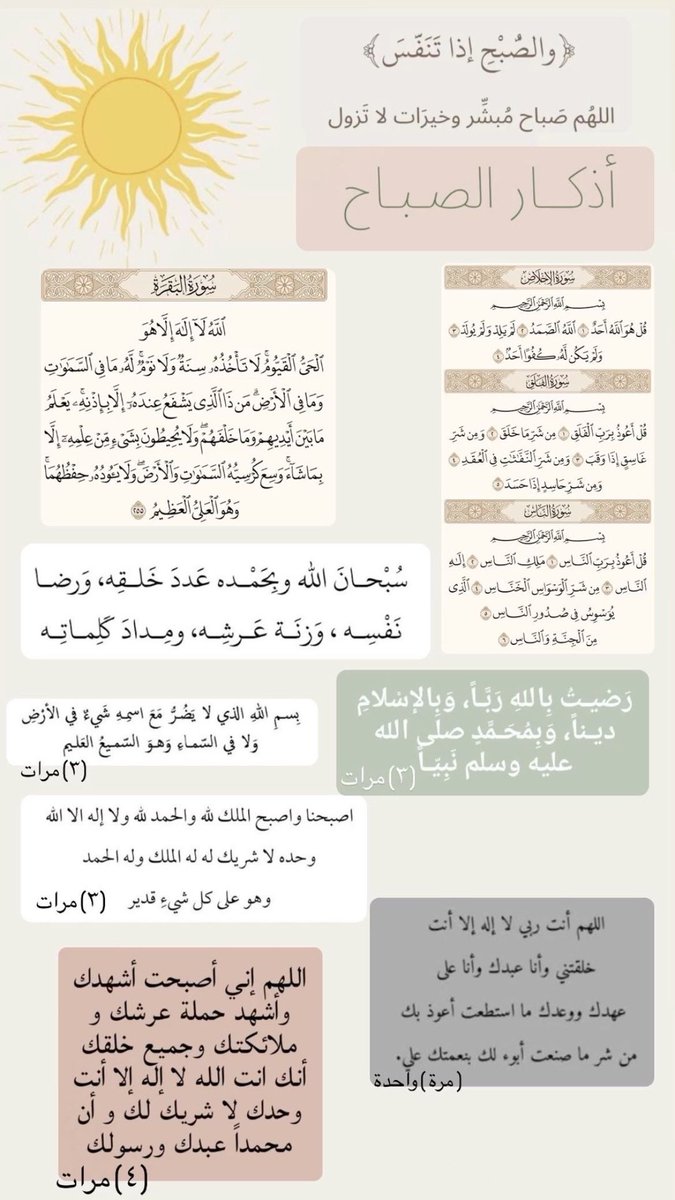 ﴿والصُّبْحِ إذا تَنَفَّسَ﴾
اللهُم صَباح مُبشِّر وخيرَات لا تَزول
أذكــار الصبـاح
سُورَةُ البَقَرَةِ
ٱللَّهُ لَآ إِلَٰهَ إِلَّا هُوَ
ٱلْحَيُّ ٱلْقَيُّومُ ۚ لَا تَأْخُذُهُۥ سِنَةٌ وَلَا نَوْمٌ ۚ لَّهُۥ مَا فِي ٱلسَّمَٰوَٰتِ
وَمَا فِي ٱلْأَرْضِ ۗ مَن ذَا ٱلَّذِي يَشْفَعُ عِندَهُۥٓ إِلَّا بِإِذْنِهِۦ ۚ يَعْلَمُ
مَا بَيْنَ أَيْدِيهِمْ وَمَا خَلْفَهُمْ ۖ وَلَا يُحِيطُونَ بِشَيْءٍ مِّنْ عِلْمِهِۦٓ إِلَّا
بِمَا شَآءَ ۚ وَسِعَ كُرْسِيُّهُ ٱلسَّمَٰوَٰتِ وَٱلْأَرْضَ ۖ وَلَا يَـُٔودُهُۥ حِفْظُهُمَا ۚ
وَهُوَ ٱلْعَلِيُّ ٱلْعَظِيمُ ٢٥٥
سُورَةُ الإِخْلَاصِ
بِسْمِ ٱللَّهِ ٱلرَّحْمَٰنِ ٱلرَّحِيمِ
قُلْ هُوَ ٱللَّهُ أَحَدٌ ١ ٱللَّهُ ٱلصَّمَدُ ٢ لَمْ يَلِدْ وَلَمْ يُولَدْ ٣
وَلَمْ يَكُن لَّهُۥ كُفُوًا أَحَدٌۢ ٤
سُورَةُ الفَلَقِ
بِسْمِ ٱللَّهِ ٱلرَّحْمَٰنِ ٱلرَّحِيمِ
قُلْ أَعُوذُ بِرَبِّ ٱلْفَلَقِ ١ مِن شَرِّ مَا خَلَقَ ٢ وَمِن شَرِّ
غَاسِقٍ إِذَا وَقَبَ ٣ وَمِن شَرِّ ٱلنَّفَّٰثَٰتِ فِي ٱلْعُقَدِ ٤
وَمِن شَرِّ حَاسِدٍ إِذَا حَسَدَ ٥
سُورَةُ النَّاسِ
بِسْمِ ٱللَّهِ ٱلرَّحْمَٰنِ ٱلرَّحِيمِ
قُلْ أَعُوذُ بِرَبِّ ٱلنَّاسِ ١ مَلِكِ ٱلنَّاسِ ٢ إِلَٰهِ
ٱلنَّاسِ ٣ مِن شَرِّ ٱلْوَسْوَاسِ ٱلْخَنَّاسِ ٤ ٱلَّذِي
يُوَسْوِسُ فِي صُدُورِ ٱلنَّاسِ ٥
مِنَ ٱلْجِنَّةِ وَٱلنَّاسِ ٦
سُبْحـانَ الله وبِحَمْـده عَـددَ خَـلـقِـه، وَرِضـا
نَفْسِـه ، وَزِنَـة عَـرشِـه، ومِـدادَ كَلِمـاتِـه
بِسمِ اللهِ الذي لا يَضُرُّ مَعَ اسمِهِ شَيءٌ في الأرْضِ
وَلا في السّماءِ وَهـوَ السّميعُ العَليم
(٣)مرات
رَضيـتُ بِاللهِ رَبَّـاً، وَبِالإسْلامِ
ديـناً، وَبِمُحَمَّدٍ صلى الله
عليه وسلم نَبِيّـاً
(٣)مرات
اصبحنا واصبح الملك لله والحمد لله ولا إله الا الله
وحده لا شريك له له الملك وله الحمد
وهو على كل شيءٍ قدير
(٣)مرات
اللهم أنت ربي لا إله إلا أنت
خلقتني وأنا عبدك وأنا على
عهدك ووعدك ما استطعت أعوذ بك
من شر ما صنعت أبوء لك بنعمتك علي.
(مرة)واحدة
اللهم إني أصبحت أشهدك
وأشهد حملة عرشك و
ملائكتك وجميع خلقك
أنك انت الله لا إله إلا أنت
وحدك لا شريك لك و أن
محمداً عبدك ورسولك
(٤)مرات